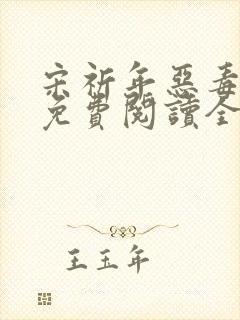 宋祈年惡毒
免費閱讀全
王玉年